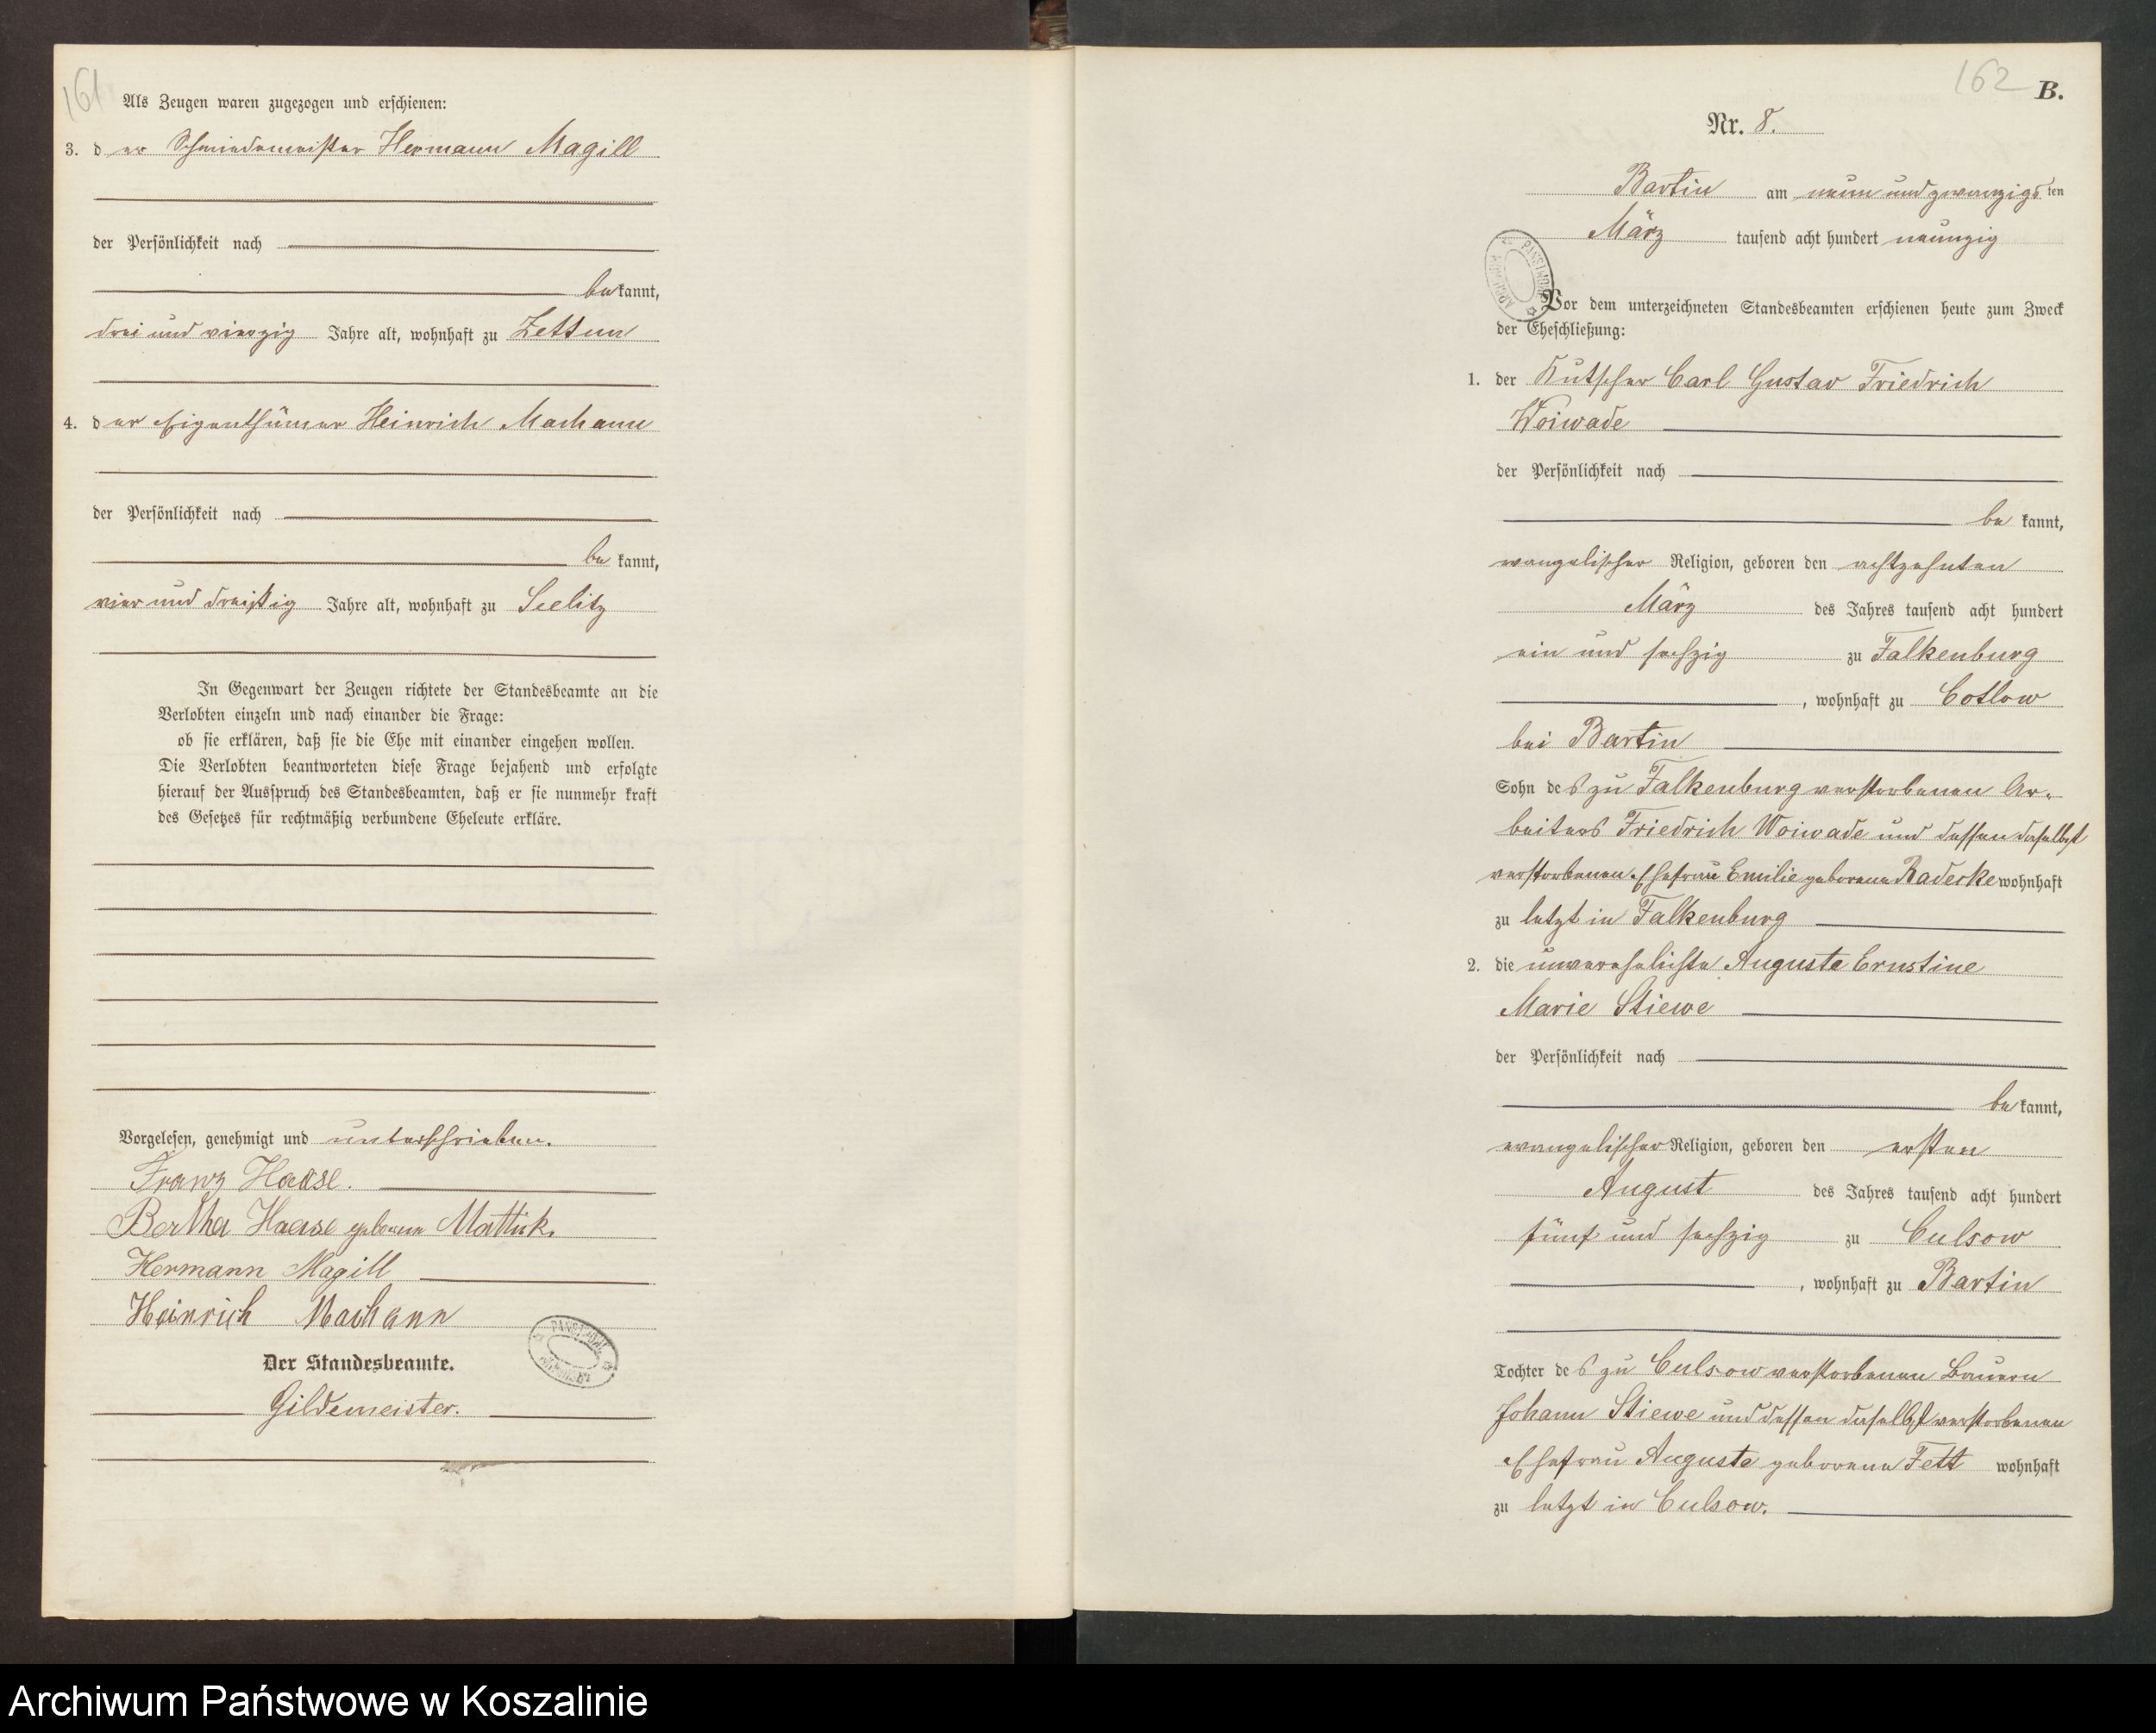 161
Als Zeugen waren zugezogen und erschienen:
3. der Schmiedemeister Hermann Magill
der Persönlichkeit nach
bekannt,
drei und vierzig Jahre alt, wohnhaft zu Zettun
4. der Eigenthümer Heinrich Machann
der Persönlichkeit nach
bekannt,
vier und dreißig Jahre alt, wohnhaft zu Seelitz
In Gegenwart der Zeugen richtete der Standesbeamte an die
Verlobten einzeln und nach einander die Frage:
ob sie erklären, daß sie die Ehe mit einander eingehen wollen.
Die Verlobten beantworteten diese Frage bejahend und erfolgte
hierauf der Ausspruch des Standesbeamten, daß er sie nunmehr kraft
des Gesetzes für rechtmäßig verbundene Eheleute erkläre.
Vorgelesen, genehmigt und unterschrieben.
Franz Haase.
Bertha Haase geborene Mattick.
Hermann Magill
Heinrich Machann
Der Standesbeamte.
Gildemeister.
162 B.
Nr. 8.
Bartin am neun und zwanzigsten
März tausend acht hundert neunzig
Vor dem unterzeichneten Standesbeamten erschienen heute zum Zweck
der Eheschließung:
1. der Kutscher Carl Gustav Friedrich
Woiwade
der Persönlichkeit nach
bekannt,
evangelischer Religion, geboren den achtzehnten
März des Jahres tausend acht hundert
ein und sechzig zu Falkenburg
, wohnhaft zu Cotlow
bei Bartin
Sohn des zu Falkenburg verstorbenen Ar-
beiters Friedrich Woiwade und dessen daselbst
verstorbenen Ehefrau Emilie geborene Radeske wohnhaft
zu letzt in Falkenburg
2. die unverehelichte Auguste Ernstine
Marie Stiewe
der Persönlichkeit nach
bekannt,
evangelischer Religion, geboren den ersten
August des Jahres tausend acht hundert
fünf und sechzig zu Culsow
, wohnhaft zu Bartin
Tochter des zu Culsow verstorbenen Bauern
Johann Stiewe und dessen daselbst verstorbenen
Ehefrau Auguste geborene Fett wohnhaft
zu letzt in Culsow.
Archiwum Państwowe w Koszalinie